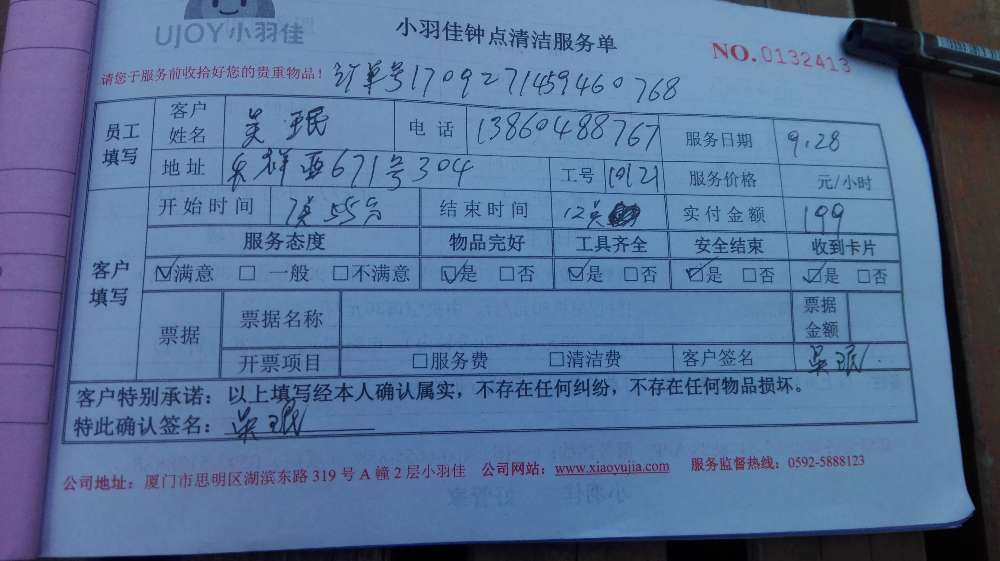 UJOY小羽佳
小羽佳钟点清洁服务单
NO.0132413
请您于服务前收拾好您的贵重物品！ 订单号1709271459460768
员工填写 客户姓名 吴珉 电话 13860488767 服务日期 9.28
地址 671号304 工号 服务价格 元/小时
开始时间 55分 结束时间 12 实付金额 199
客户填写 服务态度 物品完好 工具齐全 安全结束 收到卡片
☑满意 □一般 □不满意 ☑是 □否 ☑是 □否 ☑是 □否 ☑是 □否
票据 票据名称 票据金额
开票项目 □服务费 □清洁费 客户签名 吴珉
客户特别承诺：以上填写经本人确认属实，不存在任何纠纷，不存在任何物品损坏。
特此确认签名：吴珉
公司地址：厦门市思明区湖滨东路319号A幢2层小羽佳 公司网站：www.xiaoyujia.com 服务监督热线：0592-5888123